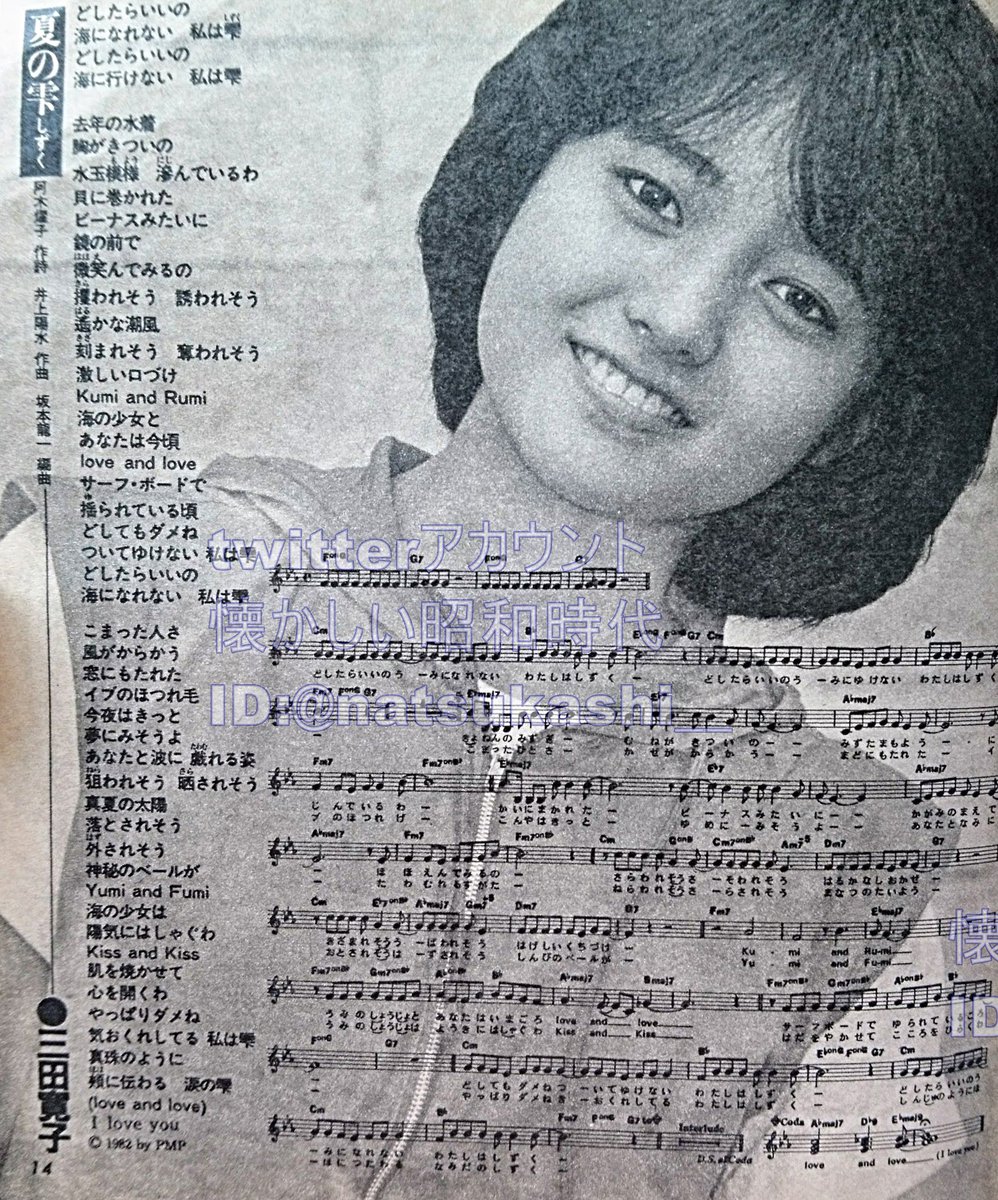 夏の雫
しずく
阿木燿子 作詩 井上陽水 作曲 坂本龍一 編曲
●三田寛子
どしたらいいの
海になれない 私は雫
どしたらいいの
海に行けない 私は雫
去年の水着
胸がきついの
水玉模様 滲んでいるわ
貝に巻かれた
ビーナスみたいに
鏡の前で
微笑んでみるの
攫われそう 誘われそう
遥かな潮風
刻まれそう 奪われそう
激しい口づけ
Kumi and Rumi
海の少女と
あなたは今頃
love and love
サーフ・ボードで
揺られている頃
どしてもダメね
ついてゆけない 私は雫
どしたらいいの
海になれない 私は雫
こまった人さ
風がからかう
窓にもたれた
イブのほつれ毛
今夜はきっと
夢にみそうよ
あなたと波に 戯れる姿
狙われそう 晒されそう
真夏の太陽
落とされそう
外されそう
神秘のベールが
Yumi and Fumi
海の少女は
陽気にはしゃぐわ
Kiss and Kiss
肌を焼かせて
心を開くわ
やっぱりダメね
気おくれしてる 私は雫
真珠のように
頬に伝わる 涙の雫
(love and love)
I love you
© 1982 by PMP
14
twitterアカウント
懐かしい昭和時代
ID:@natsukashi__
どしたらいいのう ーみになれない わたしはしずく ー どしたらいいのう ーみにゆけない わたしはしずく
きょねんのみずぎー むねがきついのー みずたまもよう ー に
こまったひとさー かぜがからかうー まどにもたれた ー イ
じんでいるわー かいにまかれたー ビーナスみたいにー かがみのまえで
ブのほつれげー こんやはきっとー ゆめにーみそうよー あなたとなみに
ーほほえんでみるのー さらわれそうさーそわれそう はるかなしおかぜー
ーたわむれるすがたー ねらわれそうさーらされそう まなつのたいようー
きざまれそううーばわれそう はげしいくちづけー Ku-mi and Ru-mi
おとされそうはーずされそう しんぴのベールがー Yu-mi and Fu-mi
うみのしょうじょと あなたはいまごろ love and love サーフボードで ゆられているころ
うみのしょうじょは ようきにはしゃぐわ Kiss and Kiss はだをやかせて こころをひらくわ
ー どしてもダメねつーいてゆけない わたしはしずくー どしたらいいのう
ー やっぱりダメねきーおくれしてる わたしはしずくー しんじゅのようには
ーみになれない わたしはしずくー
ーほにつたわる なみだのしずくー
Interlude
D.S. al Coda
Coda
love and love (I love you)
懐
ID